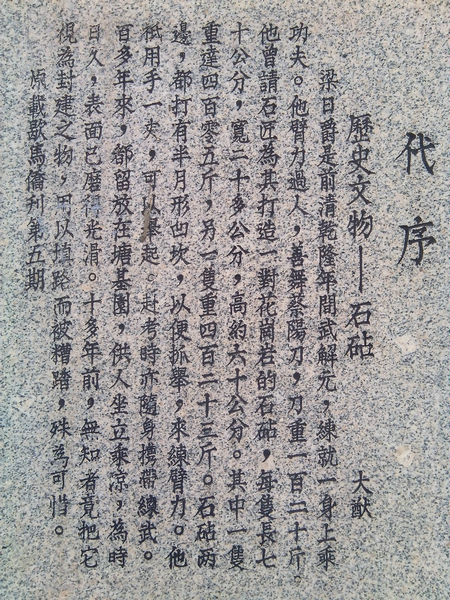 代序
歷史文物—石砧　大猷
梁日爵是前清乾隆年間武解元，練就一身上乘
功夫。他臂力過人，善舞蔡陽刀，刀重一百二十斤。
他曾請石匠為其打造一對花崗岩的石砧，每隻長七
十公分，寬二十多公分，高約六十公分。其中一隻
重達四百零五斤，另一隻重四百二十三斤。石砧两
邊，都打有半月形凹坎，以便抓舉，來練臂力。他
祇用手一夾，可以舉起。赴考時亦隨身携帶練武。
百多年來，都留放在塘基園，供人坐立乘凉，為時
日久，表面已磨得光滑。十多年前，無知者竟把它
視為封建之物，用以填路而被糟踏，殊為可惜。
原載歇馬僑刊第五期